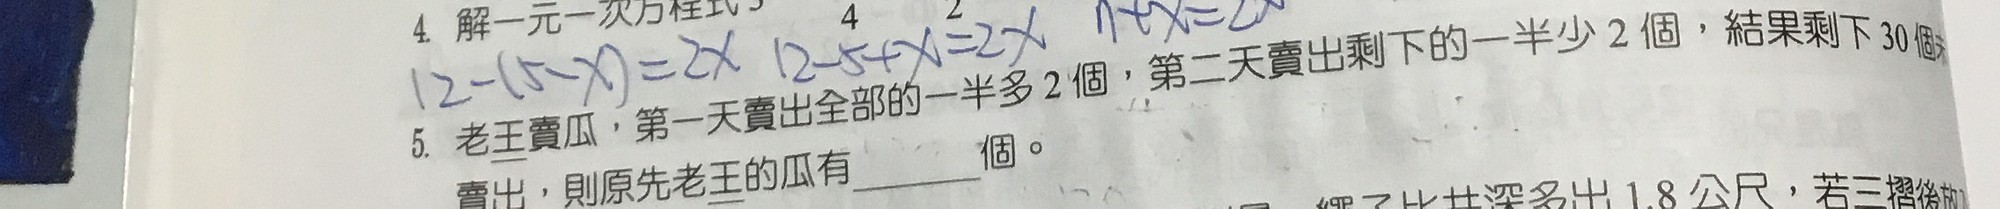 4. 解一元一次方程式
4 2
12-(5-x)=2x 12-5+x=2x 7+x=2x
5. 老王賣瓜，第一天賣出全部的一半多 2 個，第二天賣出剩下的一半少 2 個，結果剩下 30 個未
賣出，則原先老王的瓜有______個。
繩子比井深多出 1.8 公尺，若三摺後放